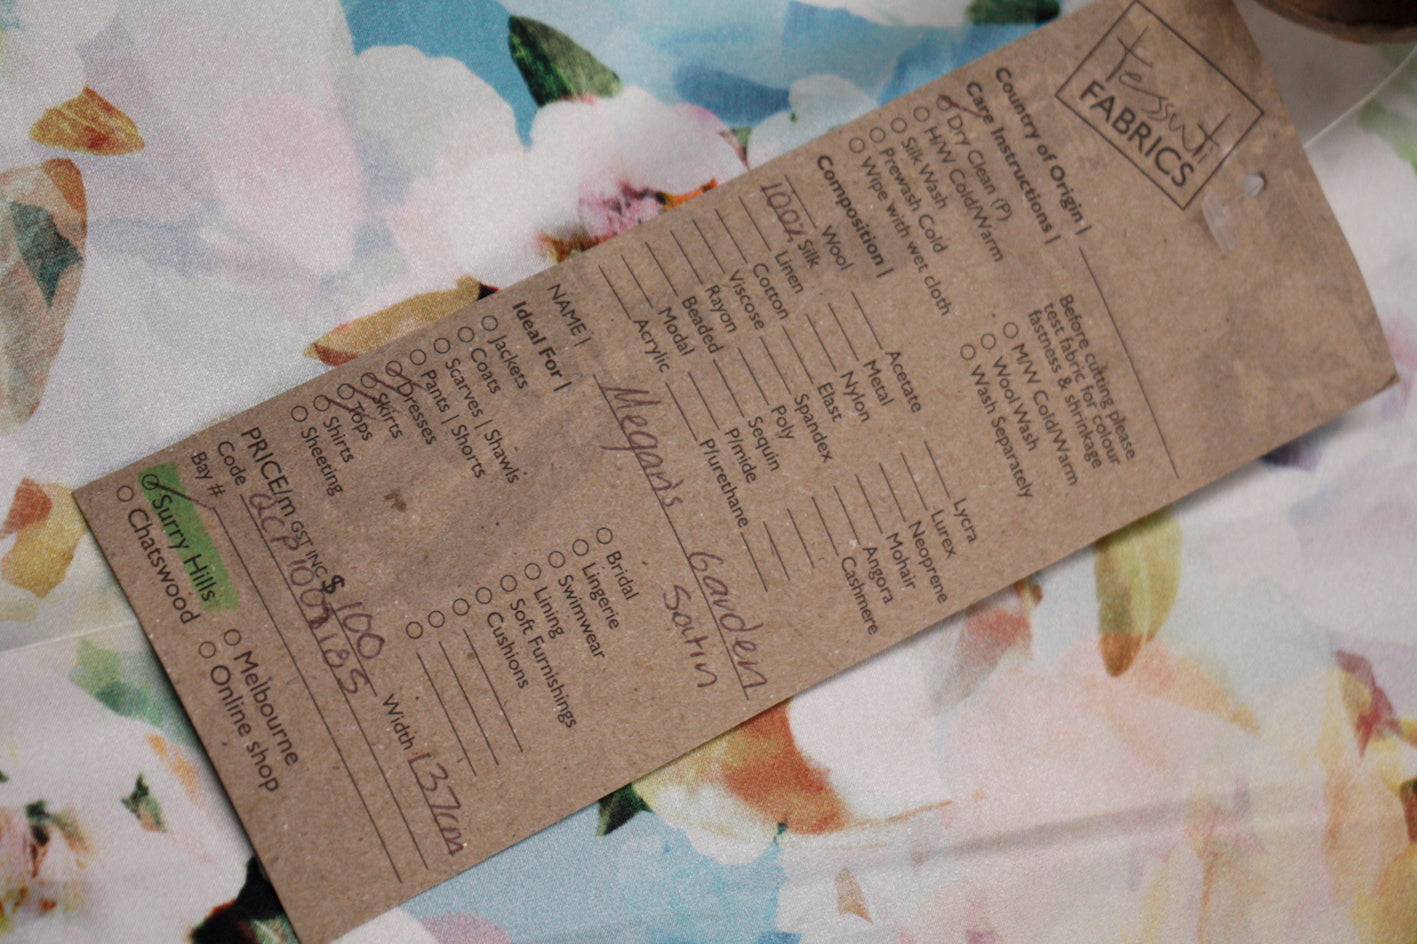 Tessuti
FABRICS
Country of Origin |
Care Instructions |
Dry Clean (P)
H/W Cold/Warm
Silk Wash
Prewash Cold
Wipe with wet cloth
Before cutting please
test fabric for colour
fastness & shrinkage
M/W Cold/Warm
Wool Wash
Wash Separately
Composition |
Wool
100% Silk
Linen
Cotton
Viscose
Rayon
Beaded
Modal
Acrylic
Acetate
Metal
Nylon
Elast
Spandex
Poly
Sequin
P/mide
P/urethane
Lycra
Lurex
Neoprene
Mohair
Angora
Cashmere
NAME | Megan's Garden
Satin
Ideal For |
Jackets
Coats
Scarves | Shawls
Pants | Shorts
Dresses
Skirts
Tops
Shirts
Sheeting
Bridal
Lingerie
Swimwear
Lining
Soft Furnishings
Cushions
PRICE/m GST INC $ 100 Width 137cm
Code
Bay #
Surry Hills
Chatswood
Melbourne
Online shop